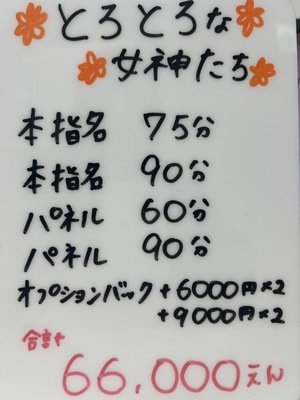 とろとろな
女神たち
本指名 75分
本指名 90分
パネル 60分
パネル 90分
オプションバック +6000円×2
+9000円×2
合計
66,000えん